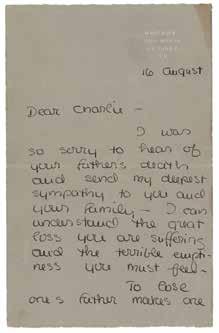 16 August
Dear Charlie –
I was
so sorry to hear of
your father's death
and send my deepest
sympathy to you and
your family – I can
understand the great
loss you are suffering
and the terrible empti-
ness you must feel –
To lose
one's father makes one